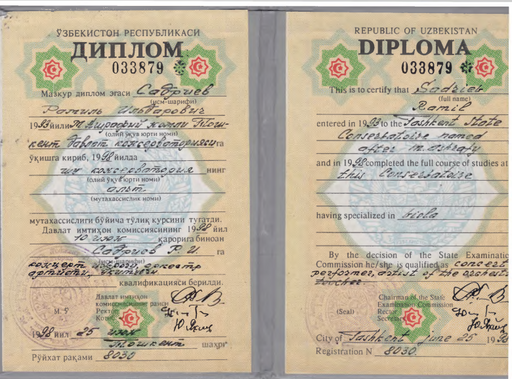 ЎЗБЕКИСТОН РЕСПУБЛИКАСИ
ДИПЛОМ
033879
Мазкур диплом эгаси Садриев
(исм-шарифи)
Рамиль Альбарович
1993 йили М. Ашрафий номли Тош-
(олий ўқув юрти номи)
кент Давлат консерваторияси га
ўқишга кириб, 1998 йилда
шу консерватория нинг
(олий ўқув юрти номи)
альт
(мутахассислик номи)
мутахассислиги бўйича тўлиқ курсини тугатди.
Давлат имтиҳон комиссиясининг 1998 йил
10 июн қарорига биноан
Садриев Р. И. га
концерт ижрочи оркестр
артисти ўқитувчи
квалификацияси берилди.
М. Ў.
Давлат
имтиҳон
Ректор
1998 йил 25 июн
Тошкент шаҳри
Рўйхат рақами 8030
REPUBLIC OF UZBEKISTAN
DIPLOMA
033879
This is to certify that Sadriev
(full name)
Ramil
entered in 1993 to the Tashkent State
Conservatoire named
after M. Ashrafy
and in 1998 completed the full course of studies at
this Conservatoire
having specialized in viola
By the decision of the State Examination
Commission he/she is qualified as concert
performer, artist of the orchestra
teacher
(Seal)
Chairman of the State
Examination Commission
Rector
Secretary
City of Tashkent June 25 1998
Registration N 8030